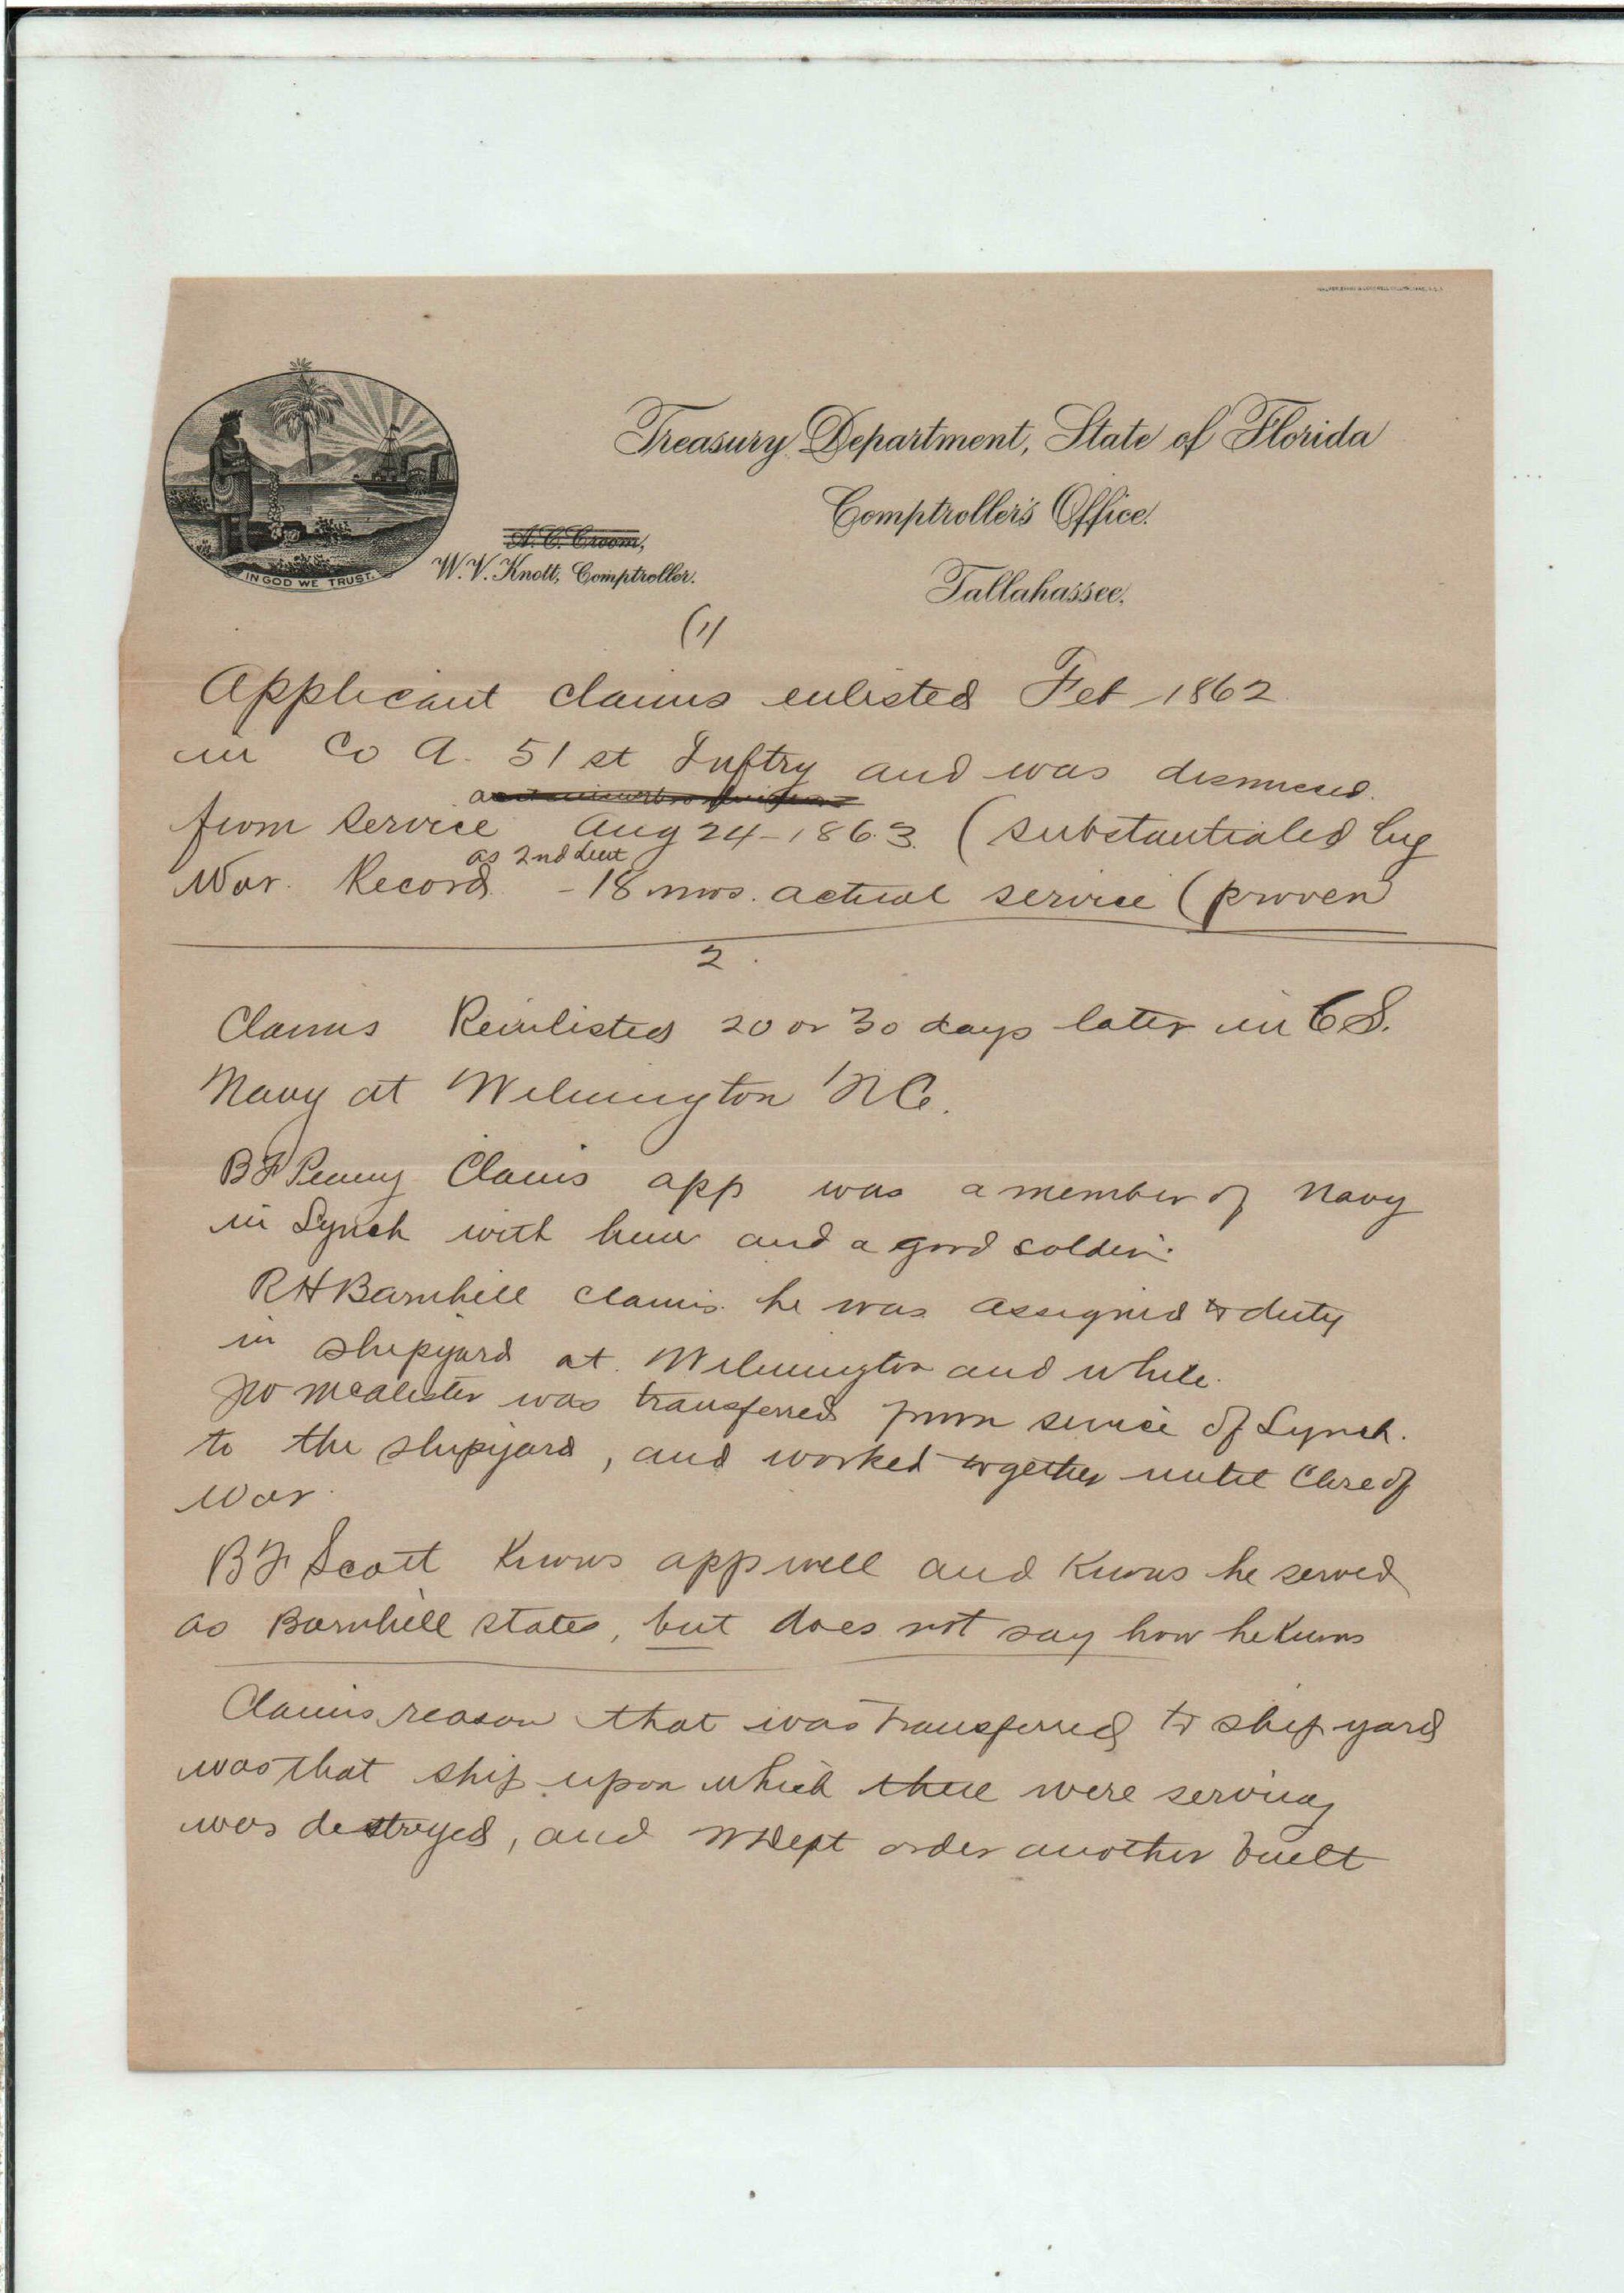 Treasury Department, State of Florida
Comptroller's Office.
Tallahassee,
A. C. Croom,
W. V. Knott, Comptroller.
IN GOD WE TRUST.
(1)
Applicant claims enlisted Feb 1862
in Co A. 51 st Inftry and was dismissed
from service Aug 24 - 1863. (substantiated by
as 2nd Lieut
War Record - 18 mos. actual service (proven)
2
Claims Reinlisted 20 or 30 days later in C S.
Navy at Wilmington N C.
B F Penny Claims app was a member of Navy
in Lynch with him and a good soldier.
R H Barnhill claims he was assigned to duty
in shipyard at Wilmington and while
Jno McAlister was transferred from service of Lynch
to the shipyard, and worked together until Close of
war
B F Scott Knows app well and Knows he served
as Barnhill states, but does not say how he Knows
Claims reason that was Transferred to ship yard
was that ship upon which there were serving
was destroyed, and Dept order another built